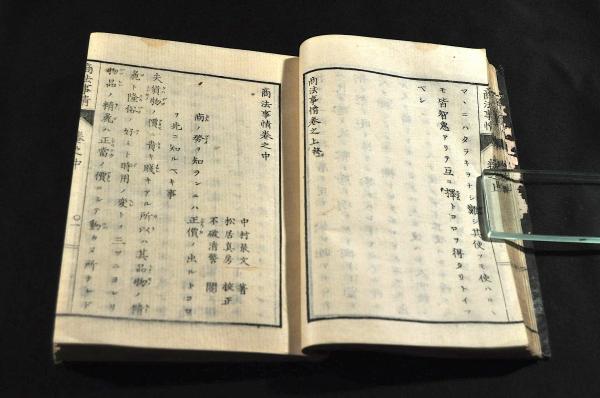 マヽニハタラキヲナシ難シ其使フモ使ハルヽ
モ皆智愚アリテ互ニ擇トコロヲ得タリトイフ
ベシ
商法事情巻之上終
商法事情巻之中
中村
著
松居真房 校正
不破清警 閲
商ノ勞ヲ知ランニハ正價ノ出ルトコロ
ヲ先ニ知ルベキ事
夫貨物ノ價ニ貴キ賤キアル所以ハ其品物ノ精
麁ト隆俗ノ好ミト時用ノ変トノ三ツニヨレリ
物品ノ精麁ハ正當ノ價ニシテ動カヌ所ナレド
商法事情
巻之中